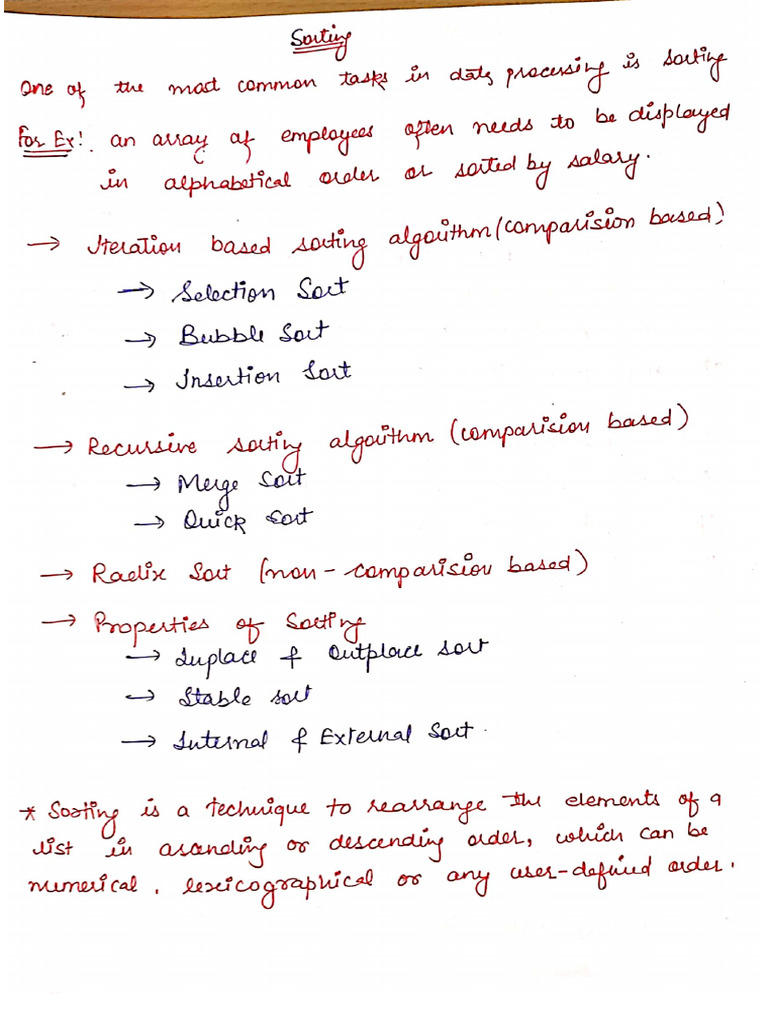 Sorting
One of the most common tasks in data processing is sorting
For Ex:. an array of employees often needs to be displayed
in alphabetical order or sorted by salary.
→ Iteration based sorting algorithm (comparision based)
→ Selection Sort
→ Bubble Sort
→ Insertion Sort
→ Recursive sorting algorithm (comparision based)
→ Merge Sort
→ Quick Sort
→ Radix Sort (non-comparision based)
→ Properties of Sorting
→ Inplace & Outplace sort
→ Stable sort
→ Internal & External Sort.
* Sorting is a technique to rearrange the elements of a
list in ascending or descending order, which can be
numerical, lexicographical or any user-defined order.